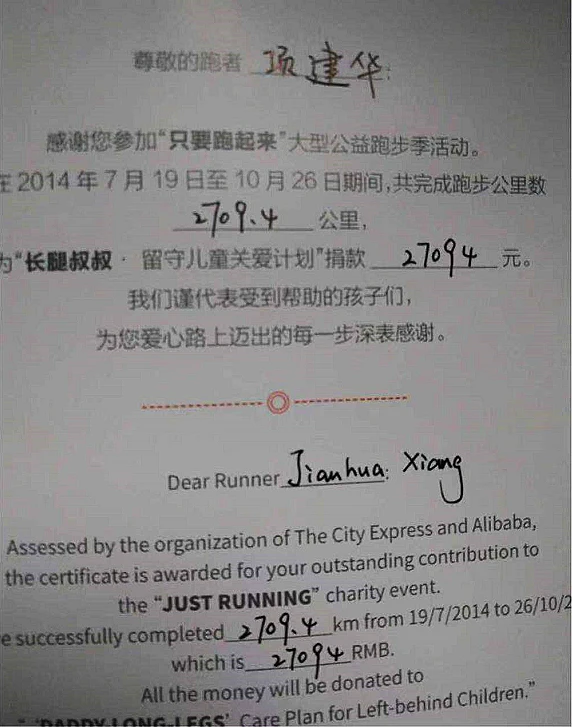 尊敬的跑者 项建华:
感谢您参加“只要跑起来”大型公益跑步季活动。
在 2014 年 7 月 19 日至 10 月 26 日期间,共完成跑步公里数
2709.4 公里,
为“长腿叔叔·留守儿童关爱计划”捐款 27094 元。
我们谨代表受到帮助的孩子们,
为您爱心路上迈出的每一步深表感谢。
Dear Runner Jianhua: Xiang
Assessed by the organization of The City Express and Alibaba,
the certificate is awarded for your outstanding contribution to
the “JUST RUNNING” charity event.
e successfully completed 2709.4 km from 19/7/2014 to 26/10/2
which is 27094 RMB.
All the money will be donated to
“ ‘DADDY-LONG-LEGS’ Care Plan for Left-behind Children.”